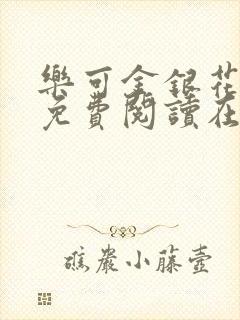 樂可金銀花
免費閱讀在
礁巖小藤壺